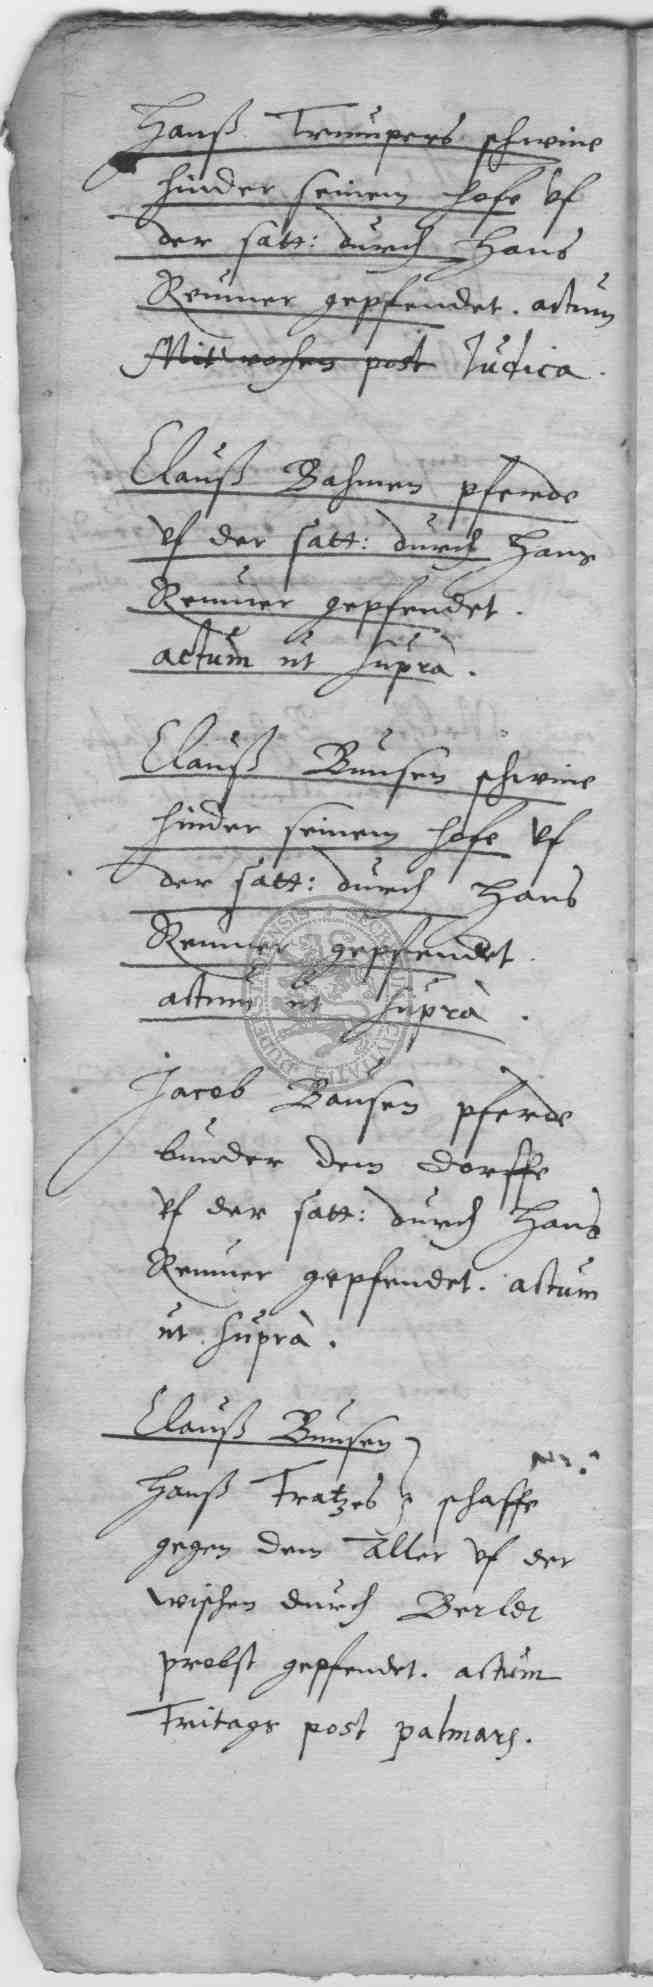 Hanß Trumpers schwine
hinder seinem hofe vf
der satt: durch Hans
Remmer gepfendet. actum
Mitwochen post Judica.
Clauß Bahmen pferde
vf der satt: durch Hans
Remmer gepfendet.
actum ut suprà.
Clauß Bunsen schwine
hinder seinem hofe vf
der satt: durch Hans
Remmer gepfendet.
actum ut suprà.
Jacob Bansen pferde
bunder dem dorffe
vf der satt: durch Hans
Remmer gepfendet. actum
ut suprà.
Clauß Bunsen
Hanß Tratzes schaffe
gegen dem Aller vf der
wischen durch Berldt
probst gepfendet. actum
Fritags post palmarum.